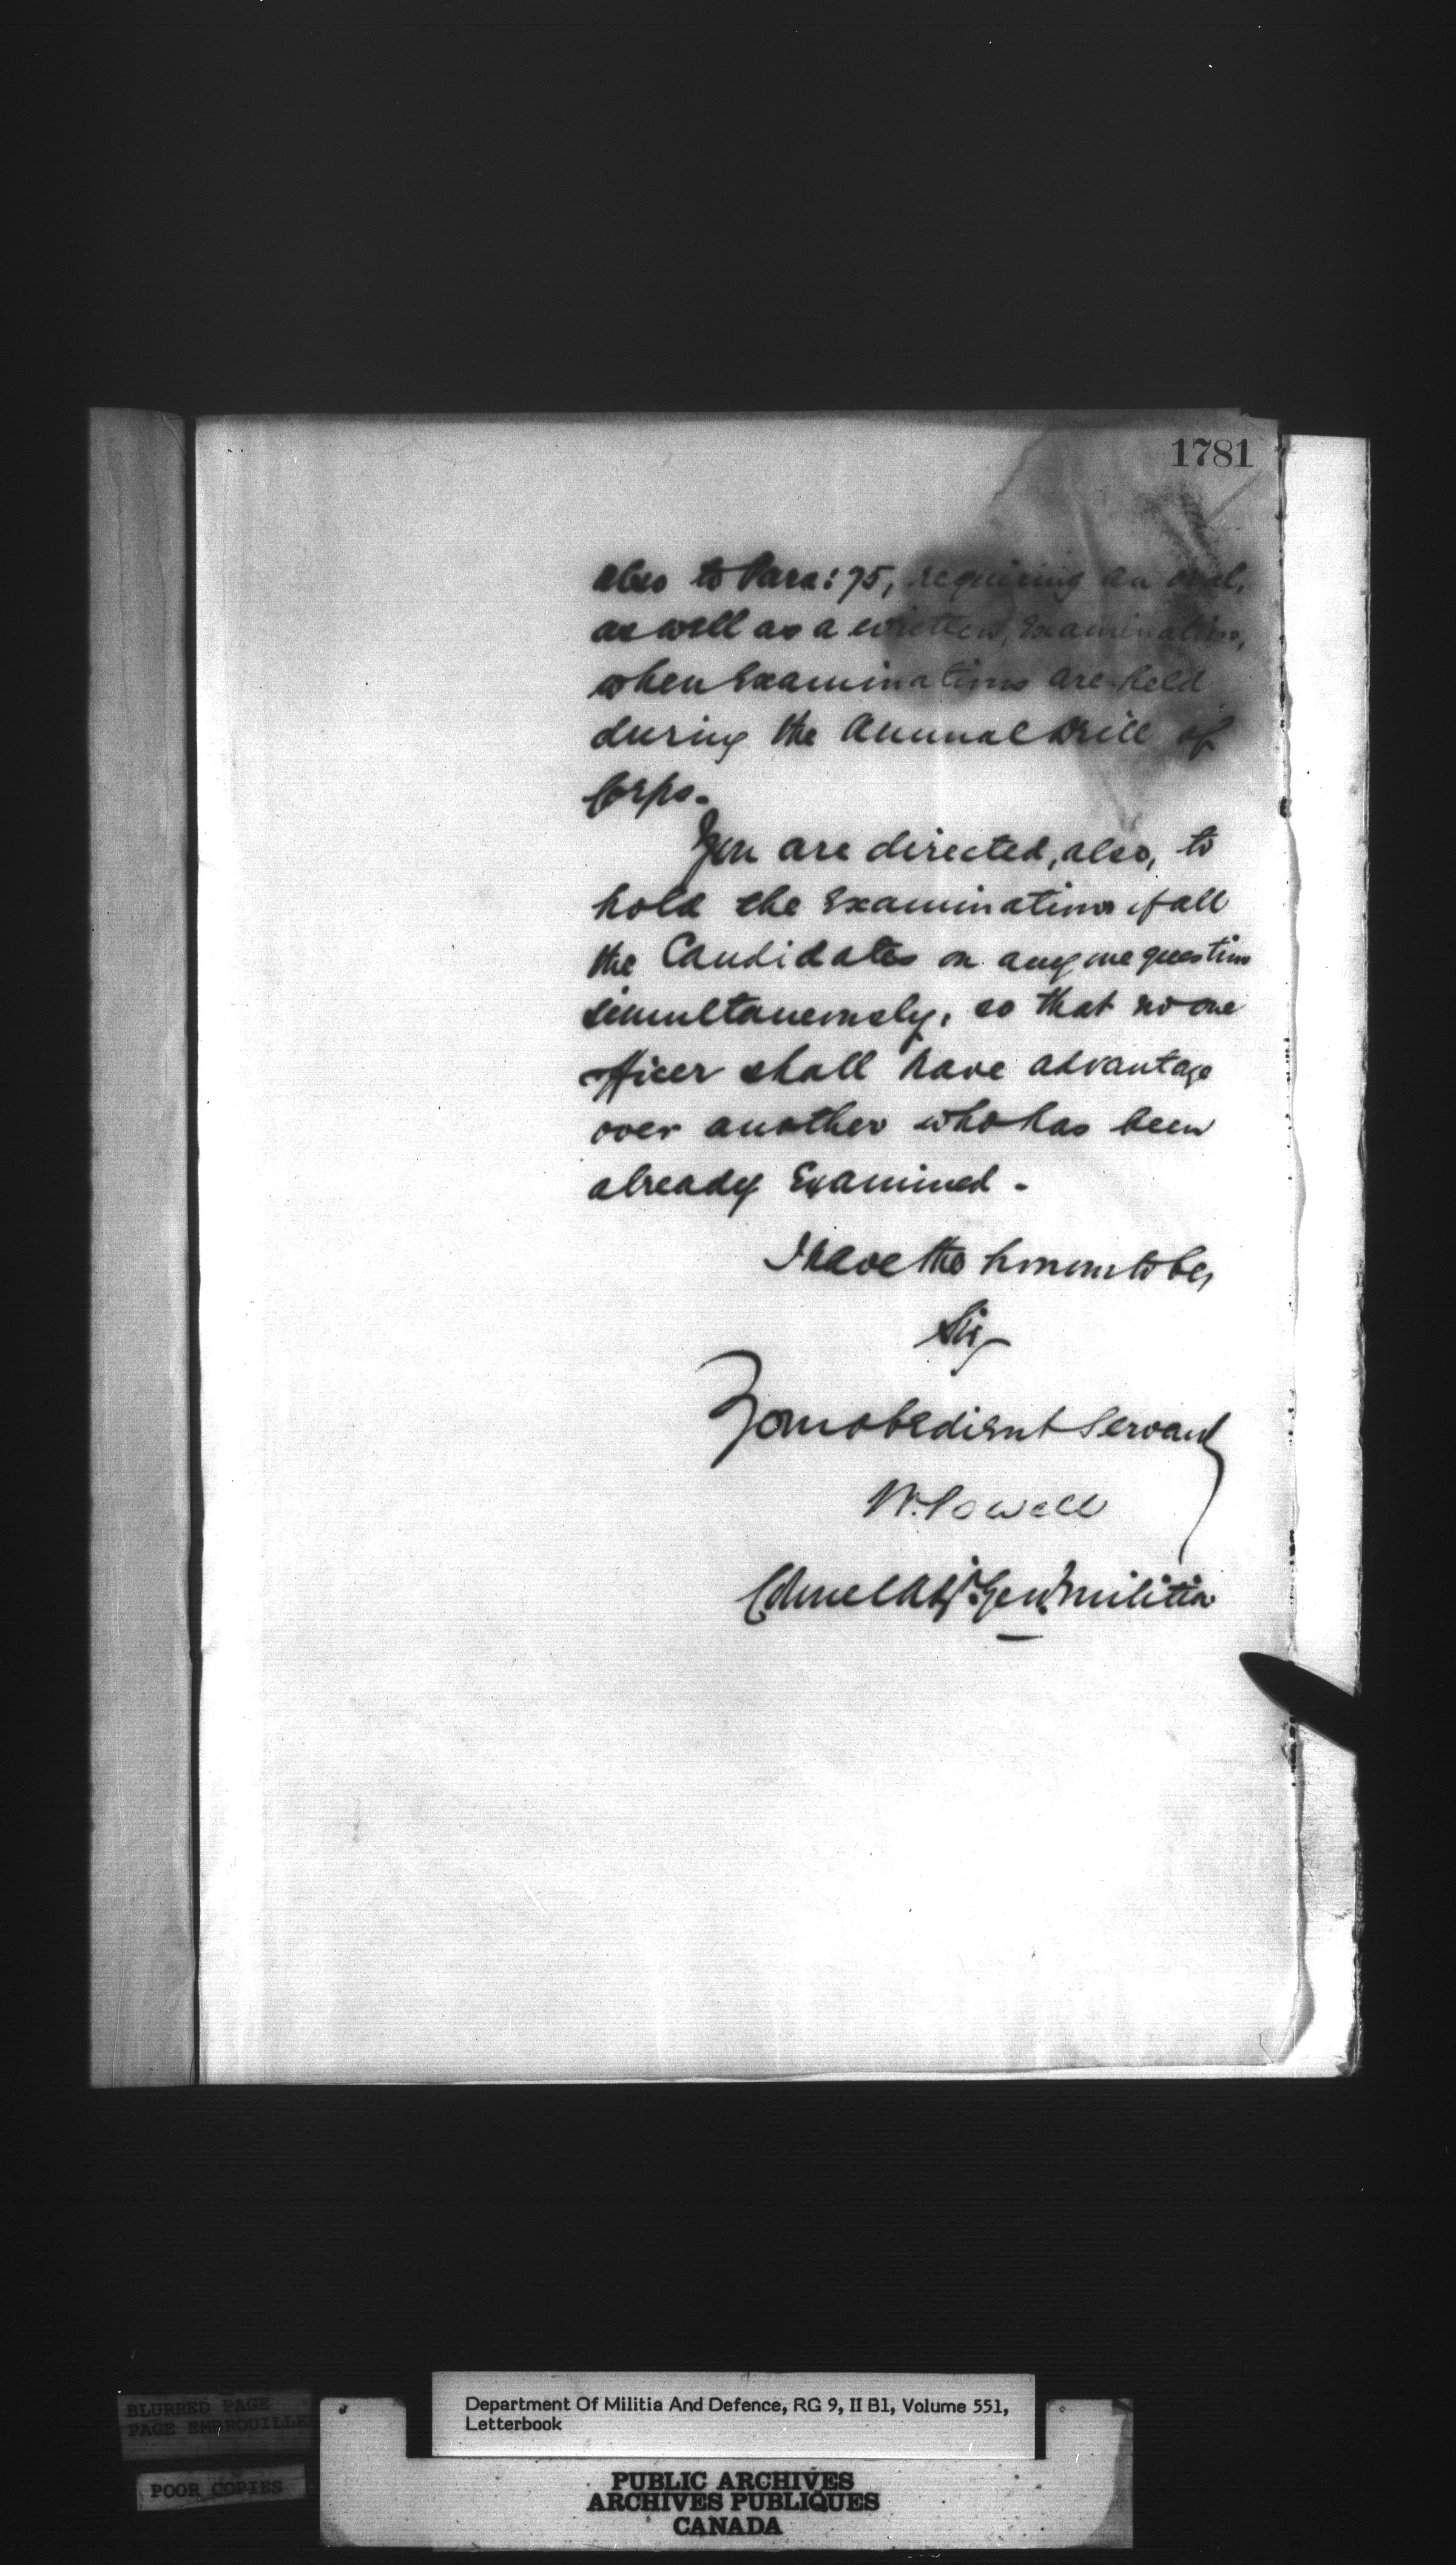 1781
also to Para: 75, requiring an oral,
as well as a written, Examination,
when Examinations are held
during the Annual Drill of
Corps.
You are directed, also, to
hold the Examination of all
the Candidates on any one question
simultaneously, so that no one
officer shall have advantage
over another who has been
already Examined -
I have the honour to be,
Sir,
Your obedient Servant
W. Powell
Colonel Adjt. Genl. Militia
BLURRED PAGE
PAGE EMBROUILLEE
POOR COPIES
Department Of Militia And Defence, RG 9, II B1, Volume 551,
Letterbook
PUBLIC ARCHIVES
ARCHIVES PUBLIQUES
CANADA